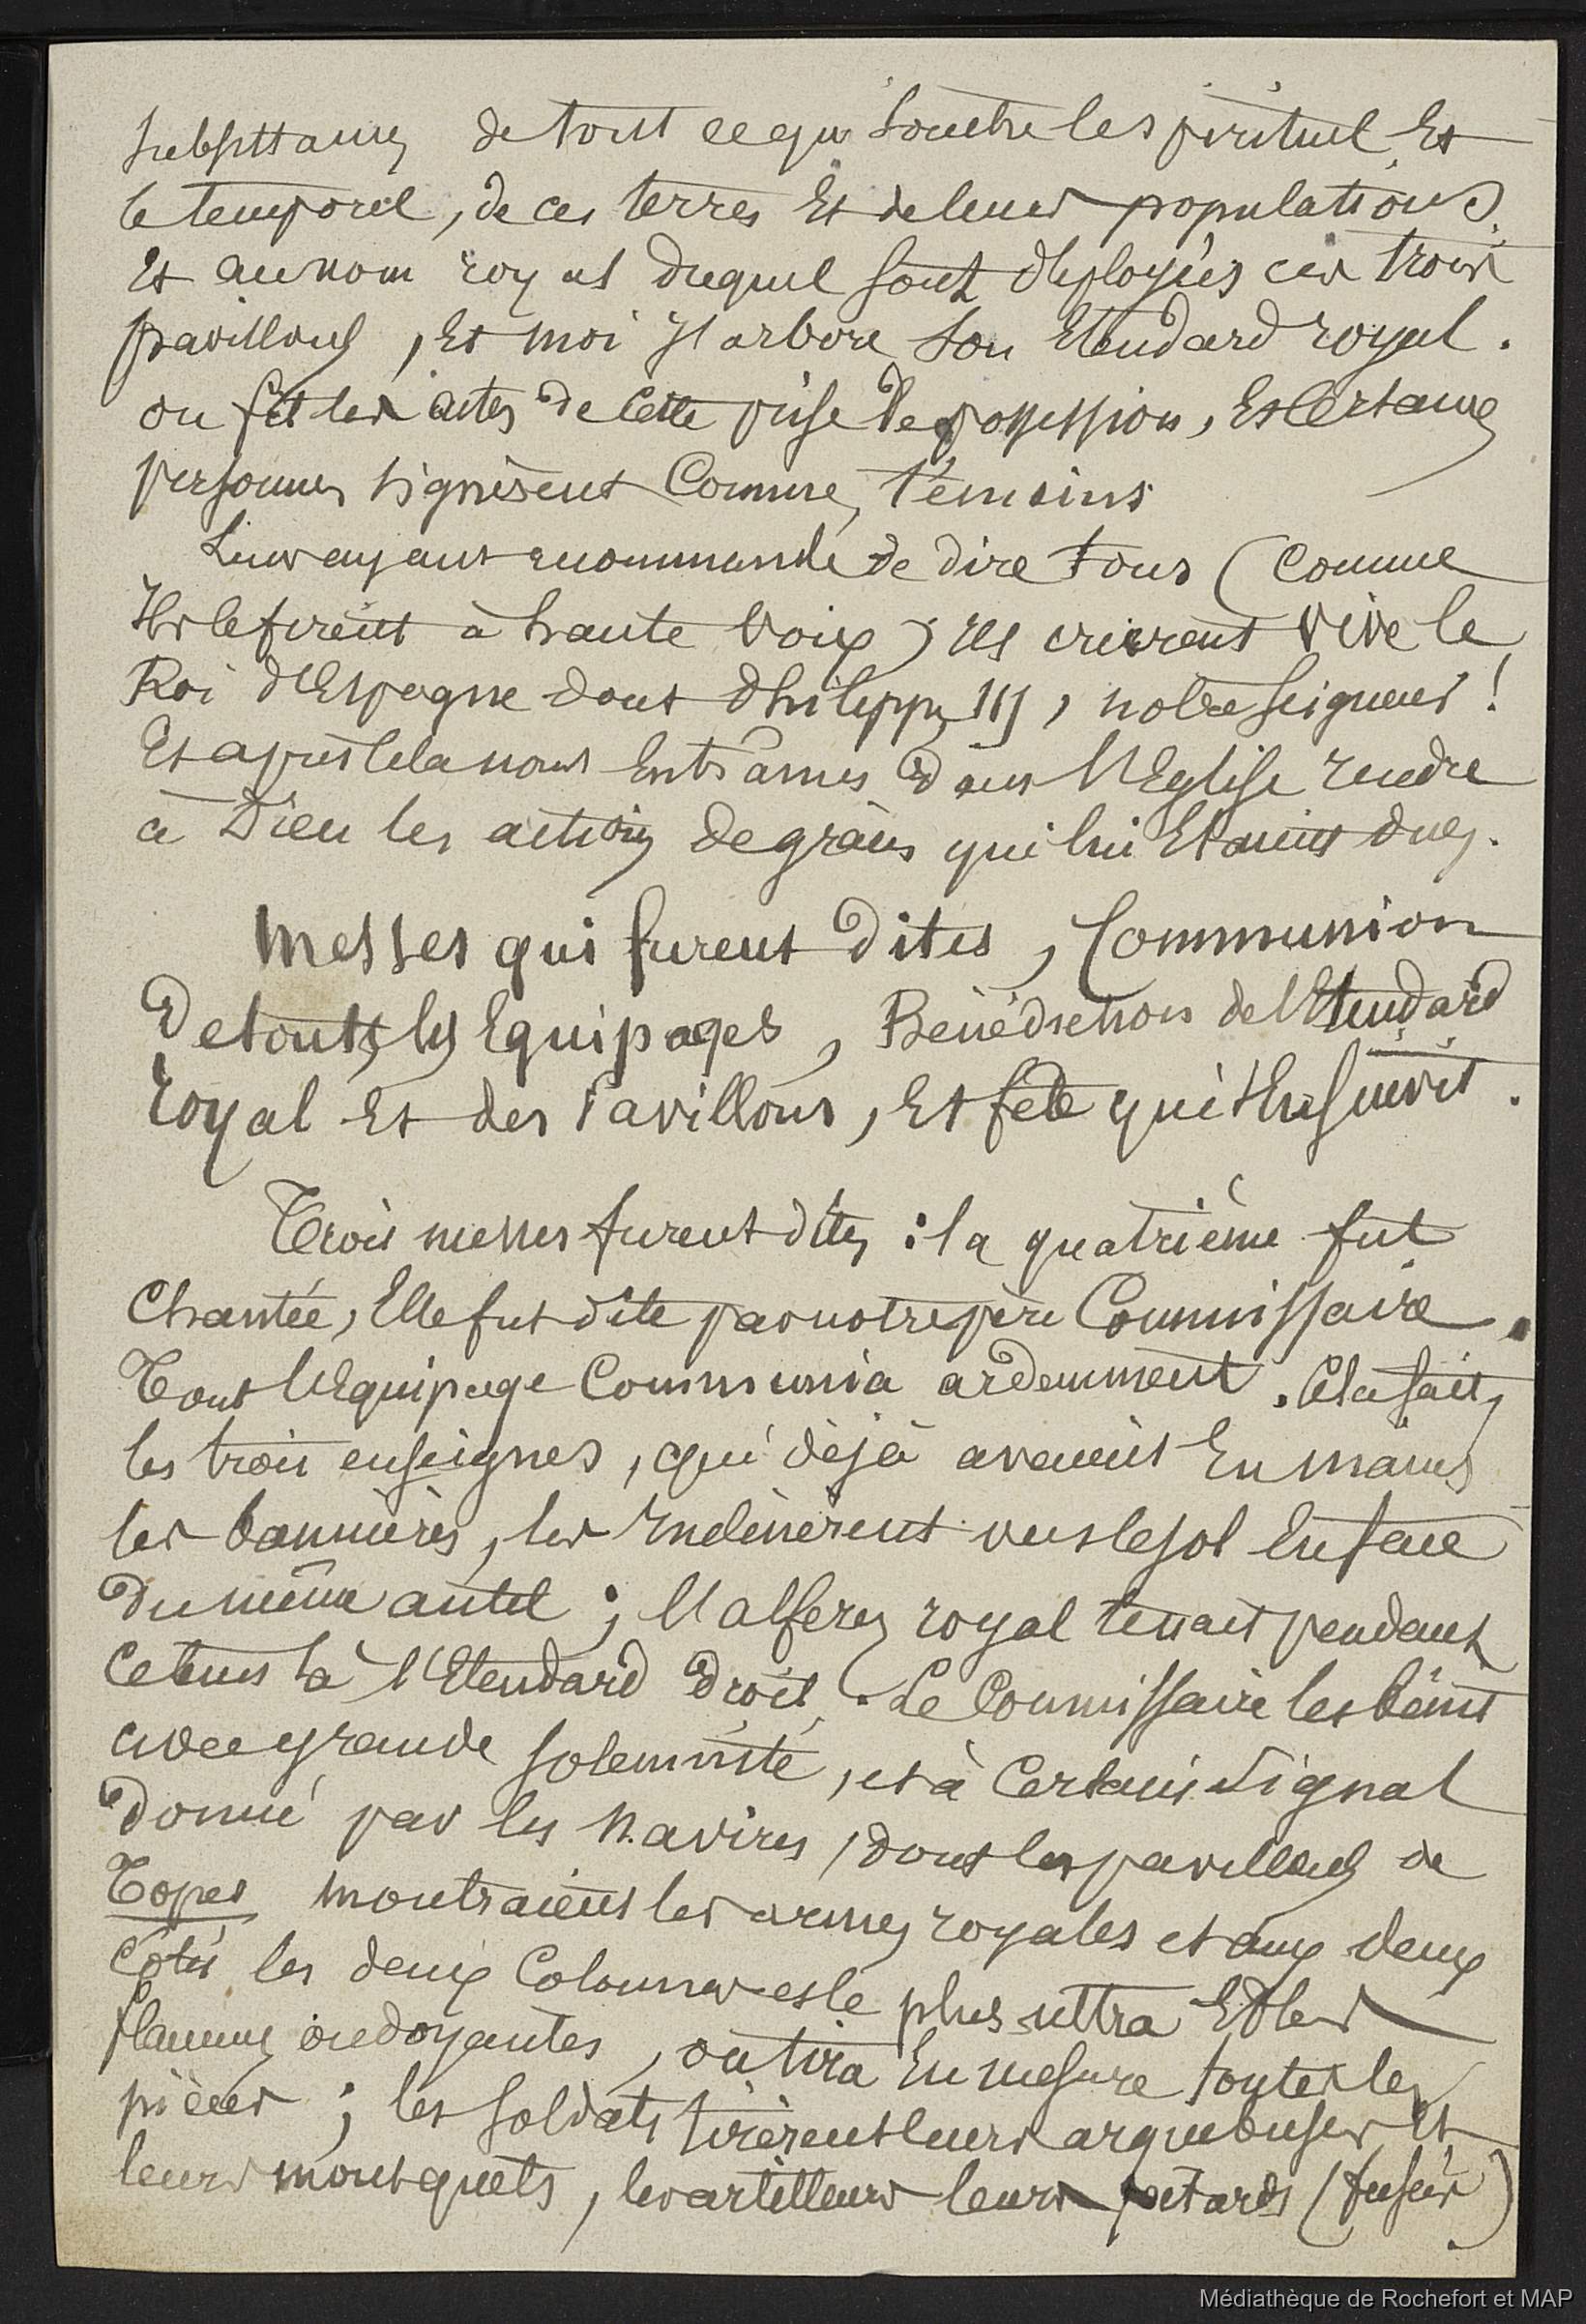 substances de tout ce qui touche le spirituel Et
le temporel, de ces terres Et de leurs populations.
Et au nom royal duquel sont deployées ces trois
pavillons, Et moi J'arbore son Etendard royal.
on fit les actes de cette prise de possession, Et Certaines
personnes signèrent Comme témoins
Leur ayant recommandé de dire tous (Comme
Ils le firent à haute voix) ils crièrent Vive le
Roi d'Espagne dont Philippe III, notre seigneur!
Et après cela nous Entrâmes dans l'Eglise rendre
à Dieu les actions de grâces qui lui Etaient dues.
Messes qui furent dites, Communion
de tous les Equipages, Bénédiction de l'Etendard
royal Et des Pavillons, Et fête qui s'en suivit.
Trois messes furent dites : la quatrième fut
Chantée, Elle fut dite par notre père Commissaire.
Tout l'Equipage Communia ardemment. Cela fait,
les trois enseignes, qui déjà avaient En mains
les bannières, les Inclinèrent vers le sol En face
du même autel ; l'alferez royal tenait pendant
ce temps là l'Etendard droit. Le Commissaire les bénit
avec grande solemnité, et à Certain signal
donné par les navires, dont les pavillons de
Topes montraient les armes royales et aux deux
côtés les deux Colonnes et le plus ultra Et les
flammes ondoyantes, on tira En mesure toutes les
pièces ; les soldats tirèrent leurs arquebuses Et
leurs mousquets, les artilleurs leurs petards (fusées)
Médiathèque de Rochefort et MAP